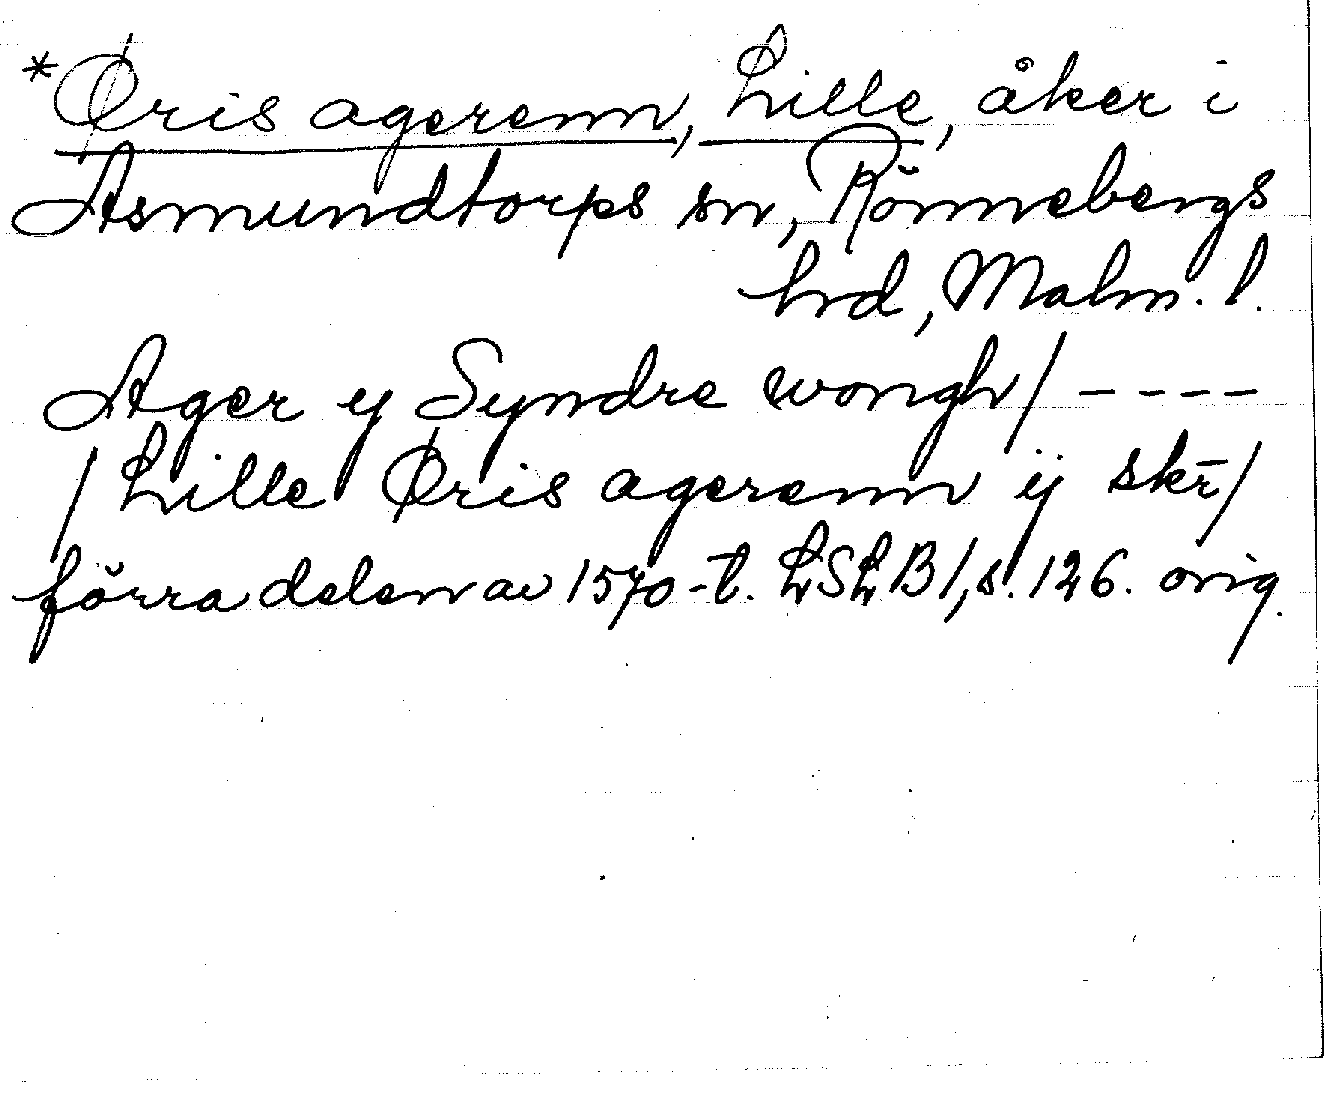 *Øris agerenn, Lille, åker i
Asmundtorps sn, Rönnebergs
hrd, Malm. l.
Ager y Syndre wongh/ - - - -
/ Lille Øris agerenn ij skr̄/
förra delen av 1570-t. LSLB1, s. 126. orig.